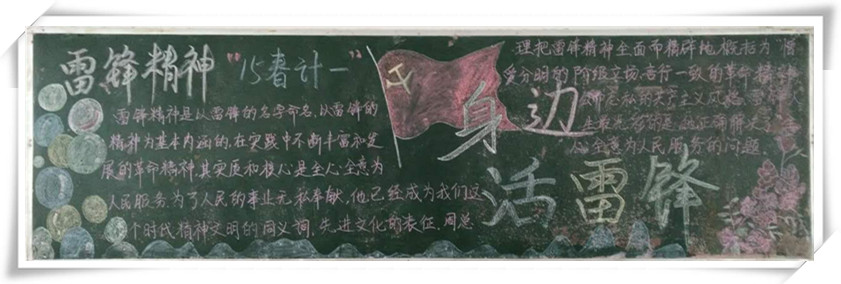 雷锋精神 "15春计一"
雷锋精神是以雷锋的名字命名,以雷锋的
精神为基本内涵的,在实践中不断丰富和发
展的革命精神,其实质和核心是全心全意为
人民服务,为了人民的事业无私奉献,他已经成为我们这
个时代精神文明的同义词,先进文化的表征,周总
身边
活雷锋
理把雷锋精神全面而精辟地概括为 憎
爱分明的阶级立场,言行一致的革命精神
共产主义风格
心全意为人民服务的问题